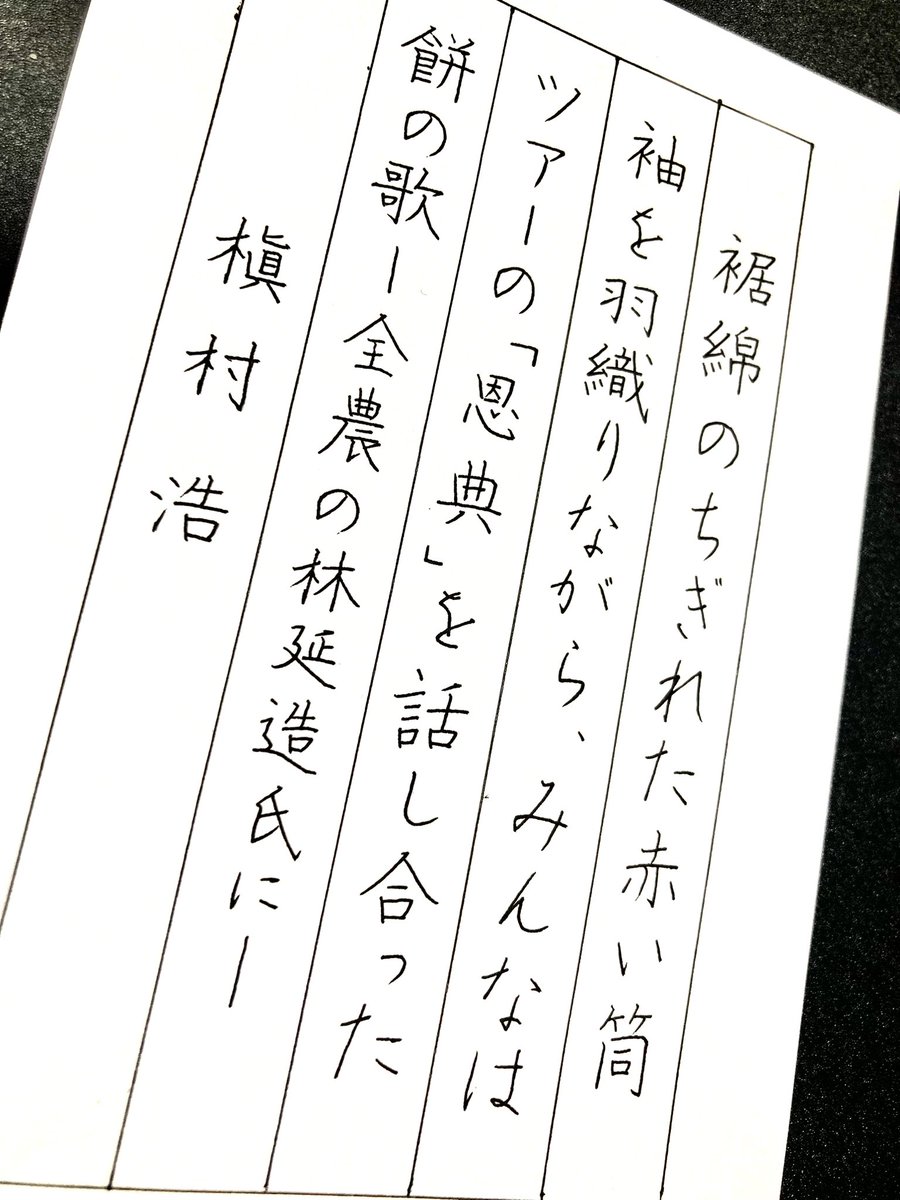 裾綿のちぎれた赤い筒
袖を羽織りながら、みんなは
ツアーの「恩典」を話し合った
餅の歌ー全農の林延造氏にー
槇村浩